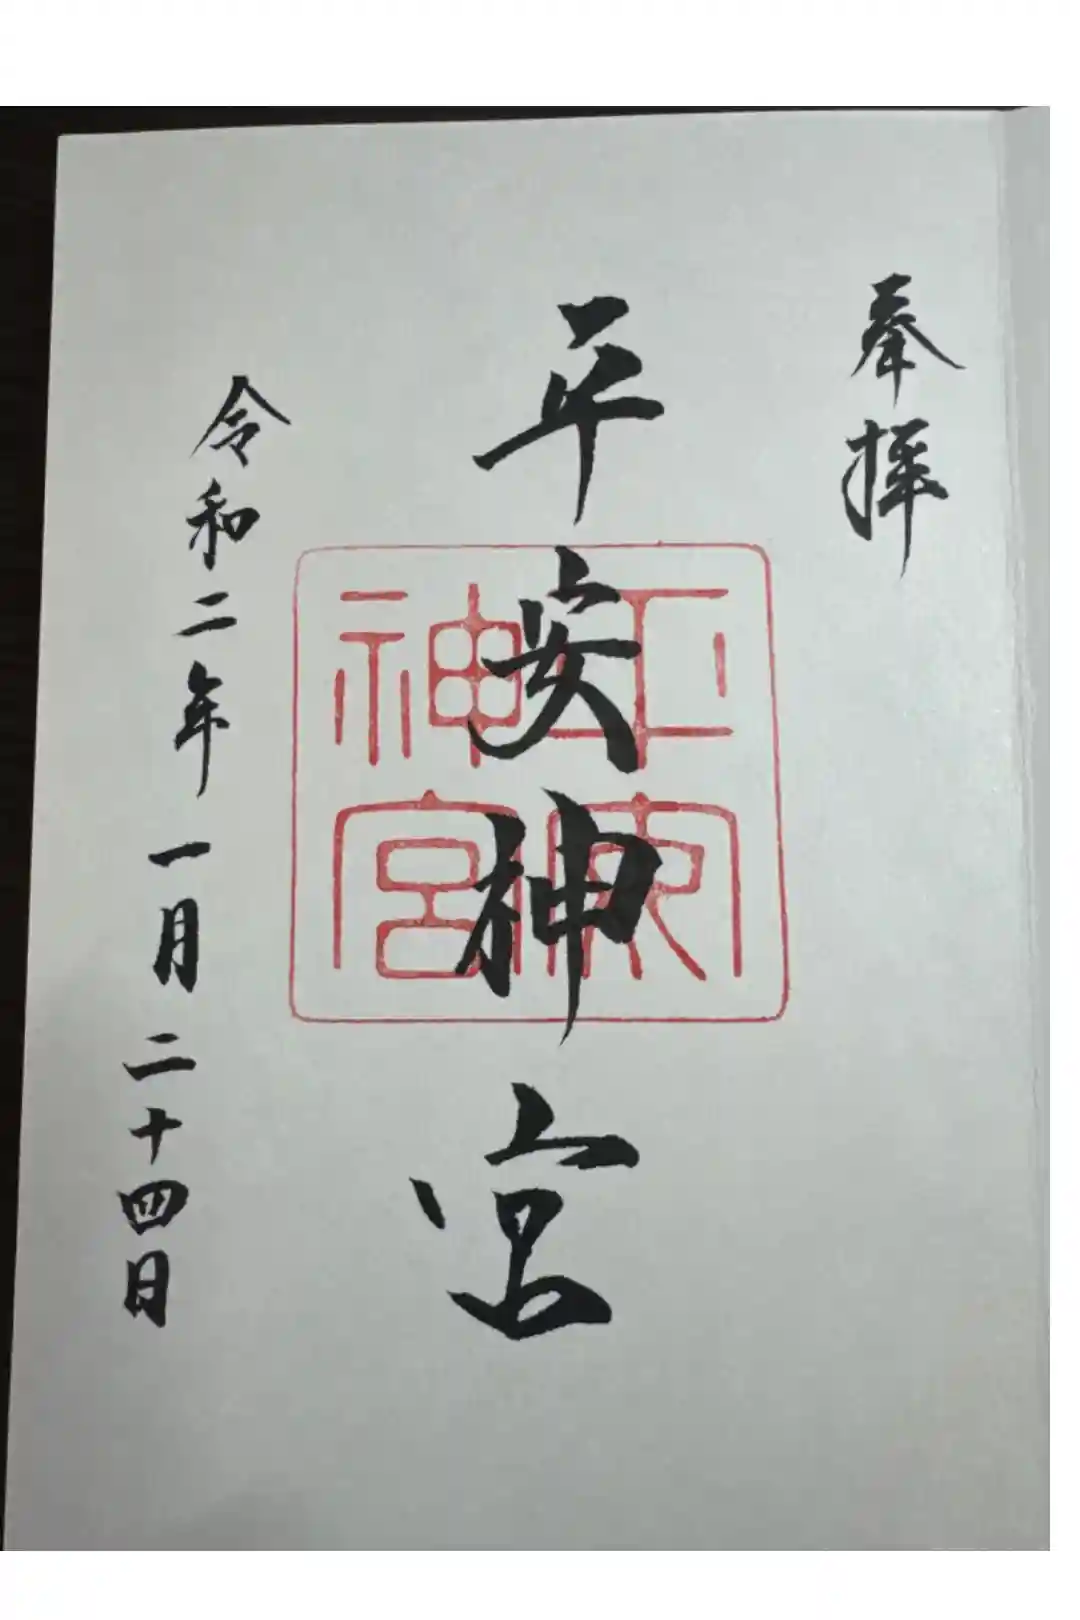 奉拝
平安神宮
平安神宮
令和二年一月二十四日